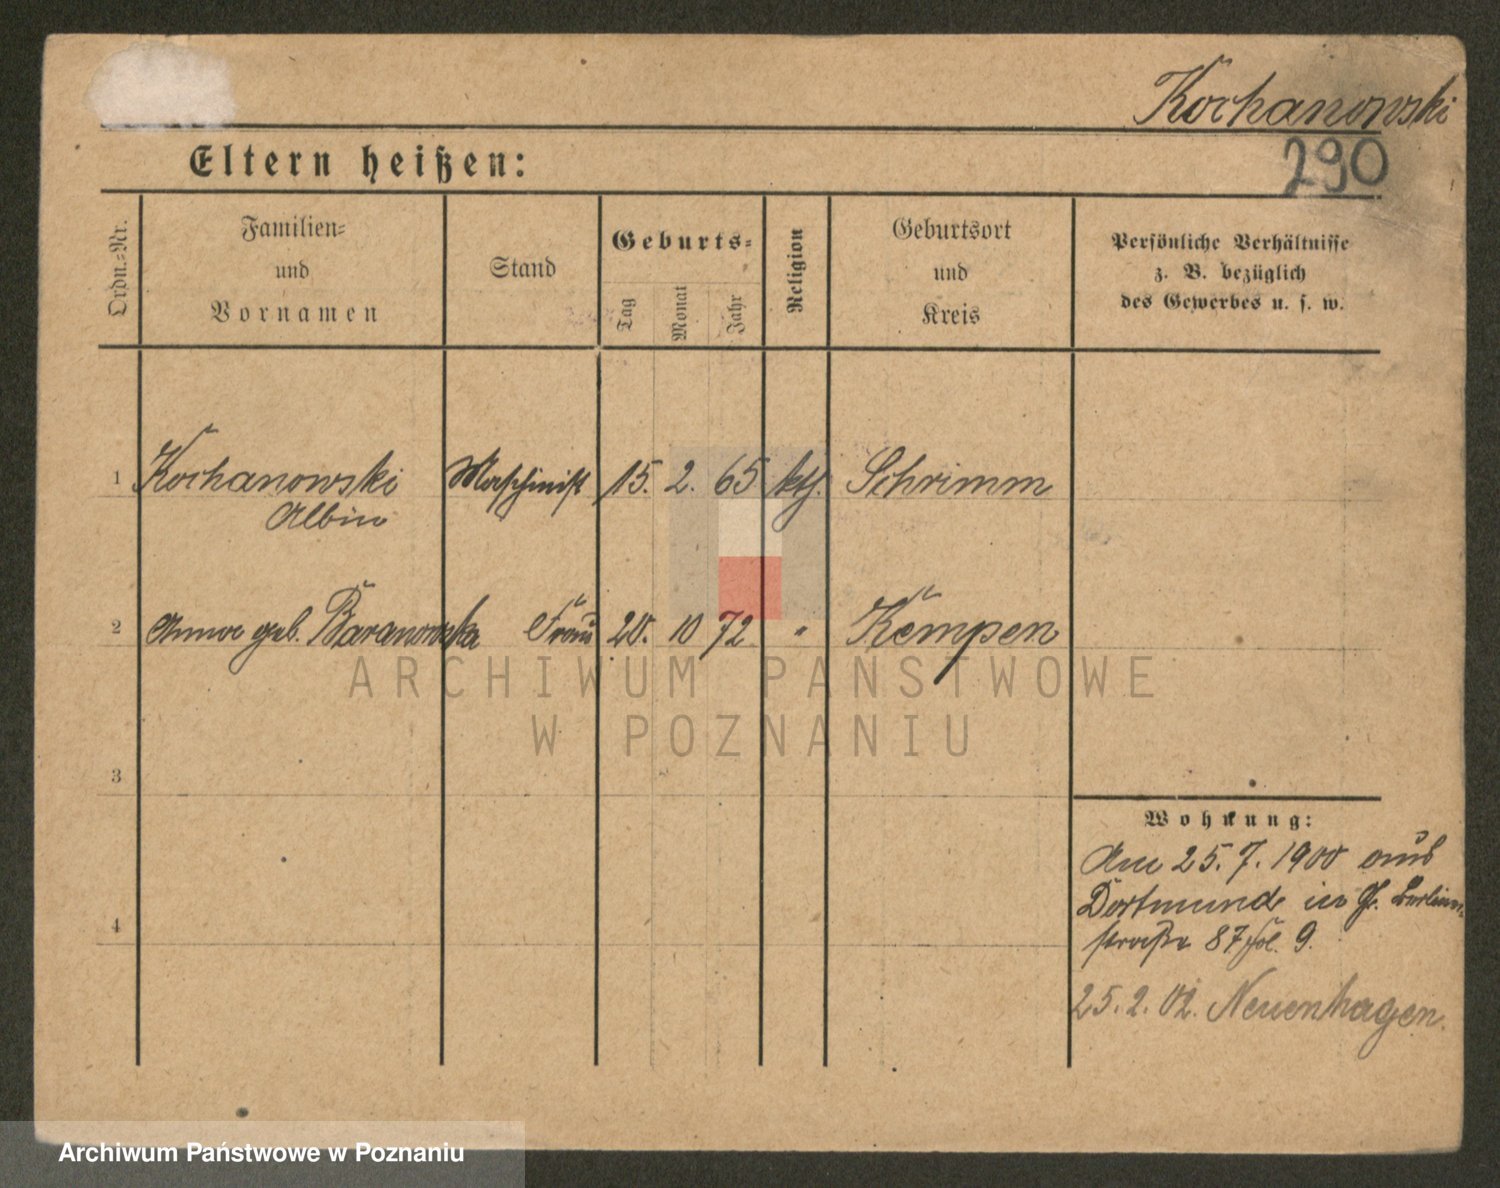 Kochanowski
290
Eltern heißen:
Ordn.-Nr.
Familien-
und
Vornamen
Stand
Geburts-
Tag
Monat
Jahr
Religion
Geburtsort
und
Kreis
Persönliche Verhältnisse
z. B. bezüglich
des Gewerbes u. s. w.
1 Kochanowski Maschinist 15. 2. 65 kth. Schrimm
Albin
2 Anna geb. Baranowska Frau 20. 10 72 " Kempen
3
4
Wohnung:
Am 25.7.1900 aus
Dortmund in Gl. Berliner-
straße 87 9.
25.2.02. Neuenhagen.
ARCHIWUM PAŃSTWOWE
W POZNANIU
Archiwum Państwowe w Poznaniu